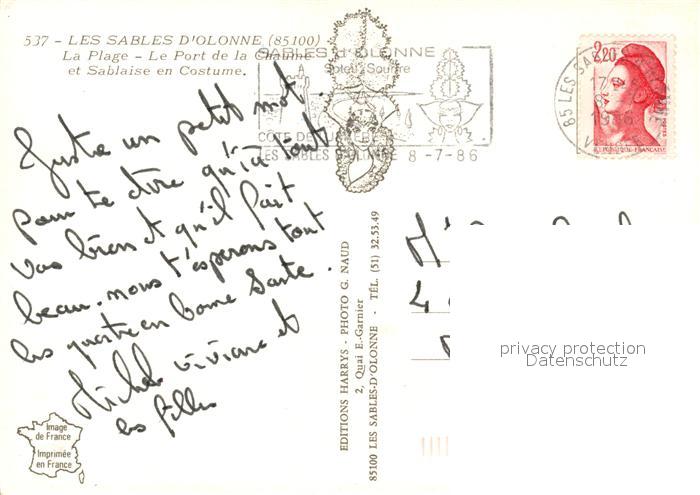 537 - LES SABLES D'OLONNE (85100)
La Plage - Le Port de la Chaume
et Sablaise en Costume.
SABLES D'OLONNE
Soleil Sourire
COTE DE
LES SABLES D'OLONNE 8-7-86
65 LES SA
17
8
1986
2,20
REPUBLIQUE FRANÇAISE
Juste un petit mot.
pour te dire qu'ici tout
vas bien et qu'il fait
beau. nous t'esperons tout
les quatre en bonne Sante.
Michel Viviane et
les filles
EDITIONS HARRYS - PHOTO G. NAUD
2, Quai E.-Garnier
85100 LES SABLES-D'OLONNE - TÉL. (51) 32.53.49
privacy protection
Datenschutz
Image
de France
Imprimée
en France